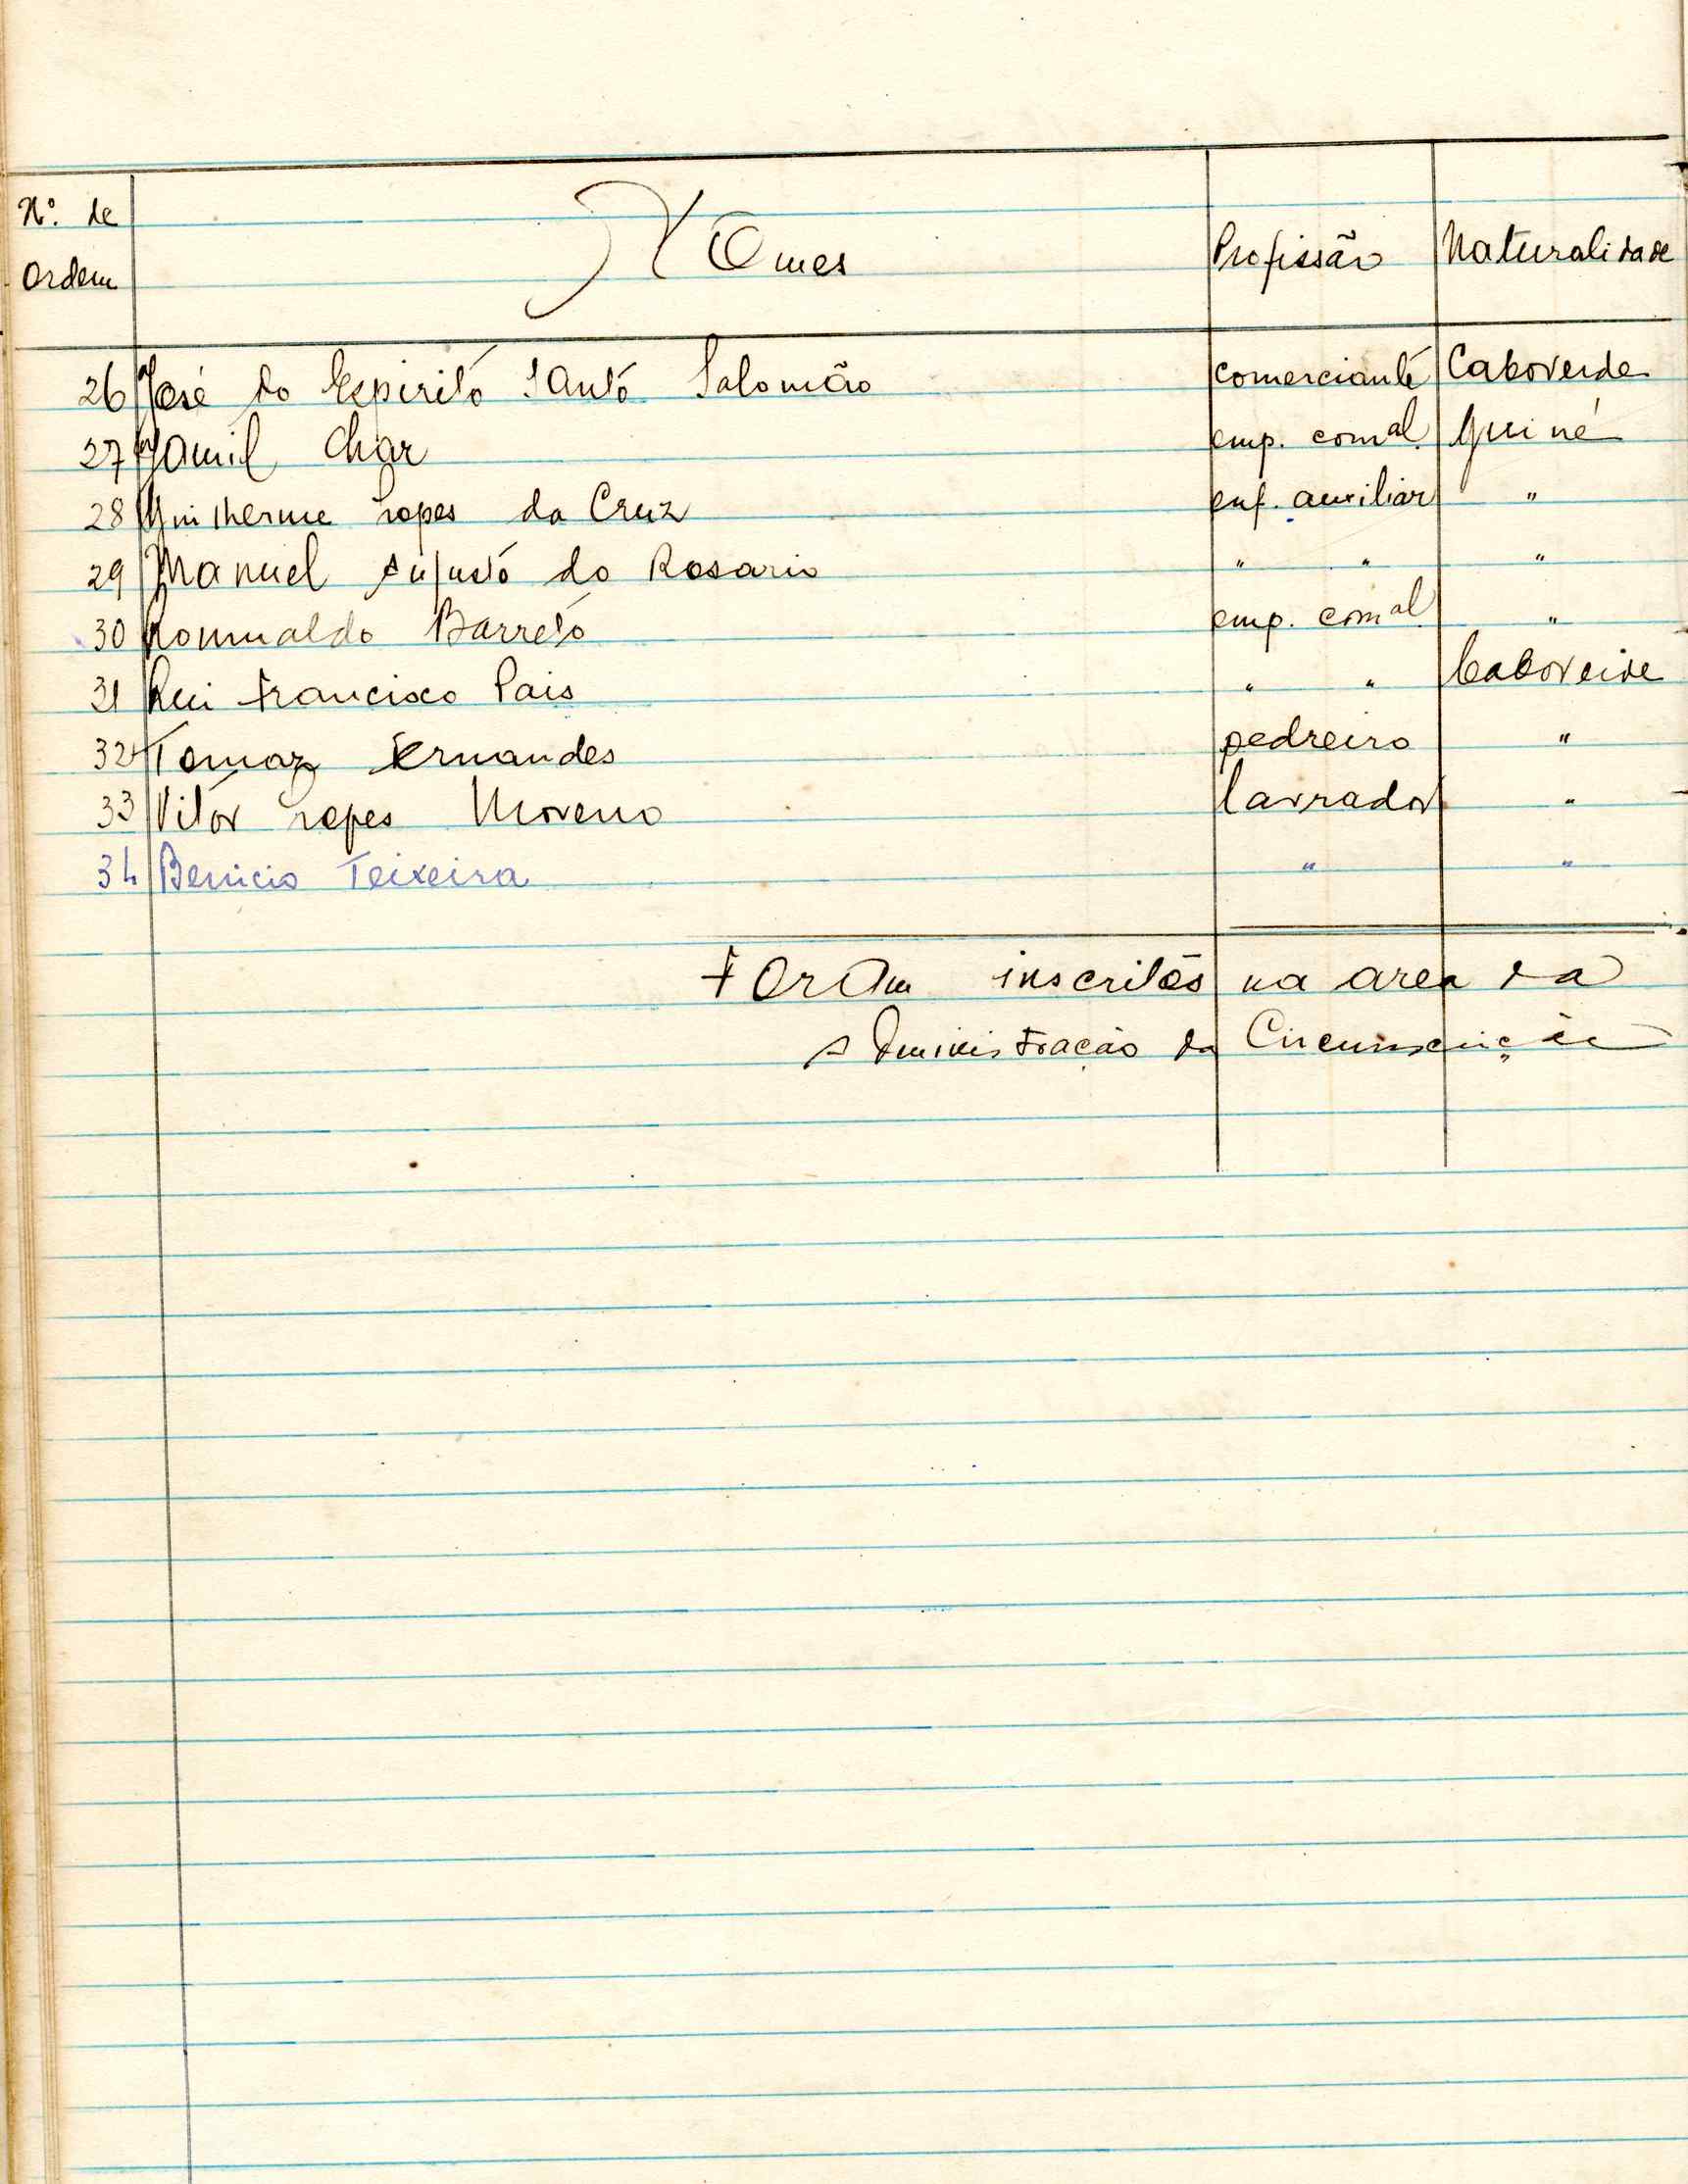 Nº. de Ordem Nomes Profissão Naturalidade
26 José do Espirito Santo Salomão comerciante Caboverde
27 Jamil Char emp. comal. Guiné
28 Guilherme Lopes da Cruz enf. auxiliar "
29 Manuel Augusto do Rosario " " "
30 Romualdo Barreto emp. comal. "
31 Rui Francisco Pais " " Caboverde
32 Tomaz Fernandes pedreiro "
33 Vitor Lopes Moreno lavrador "
34 Benicio Teixeira " "
Foram inscritos na area da
Administração da Circunscrição